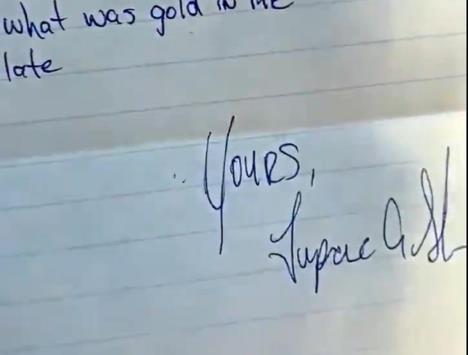 what was gold in me
late
Yours,
Tupac A. Sh